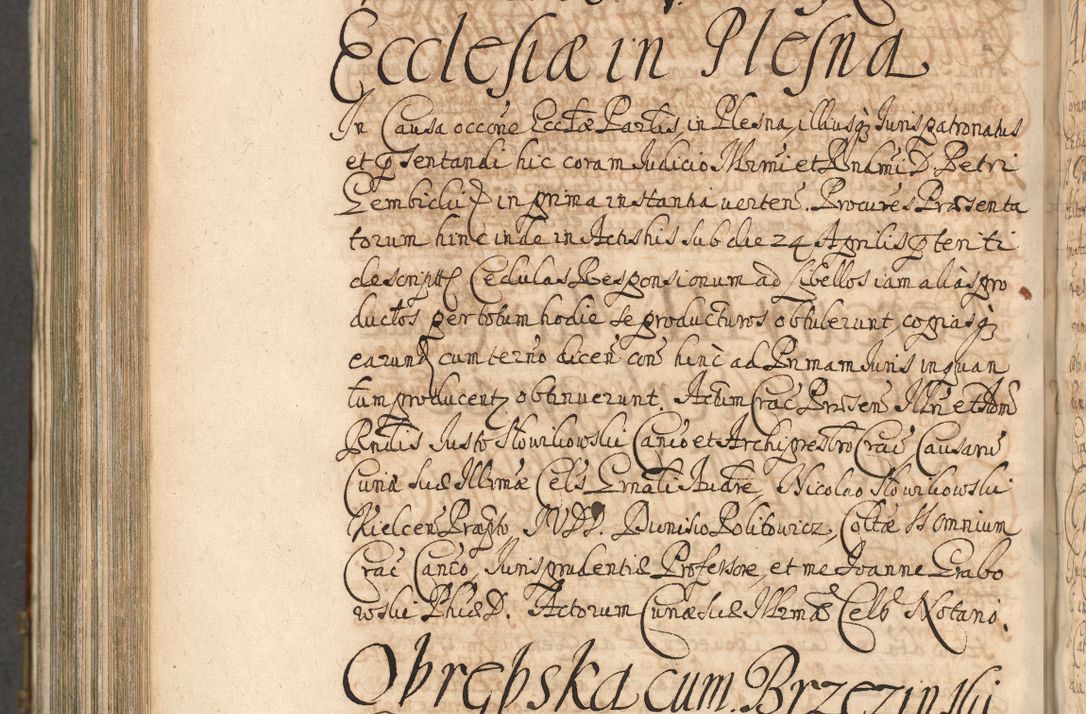 Ecclesiæ in Plesna
In Causa occone Eccłæ Parlis, in Plesna, illiusq Juris patronatus
et psentandi hic coram Judicio Illrmi et Rndmi D. Petri
Gembicki in prima instantia verten. Procures Præsenta
torum hinc inde in Actis his sub die 24 Aprilis pteriti
descriptt Cedulas Responsionum ad Libellos iam aliàs pro
ductos per totum hodie se producturos obtulerunt, copiasq
earund cum terno dicen con hinc ad Primam Juris in quan
tum producent obtinuerunt. Actum Crac Præsen Illri et Adm
Rndis Justo Słowikowski Canco et Archipresbro Crac Causaru
Curiæ suæ Illrmæ Cels Grnali Audre, Nicolao Słowikowski
Kielcen Præpto JVDD. Dunisio Politowicz, Coltæ SS Omnium
Crac Canco, Jurisprudentiæ Professore, et me Joanne Grabo
wski Phiæ D. Actorum Curiæ suæ Illrmæ Cels Notario.
Obrębska cum Brzezinski